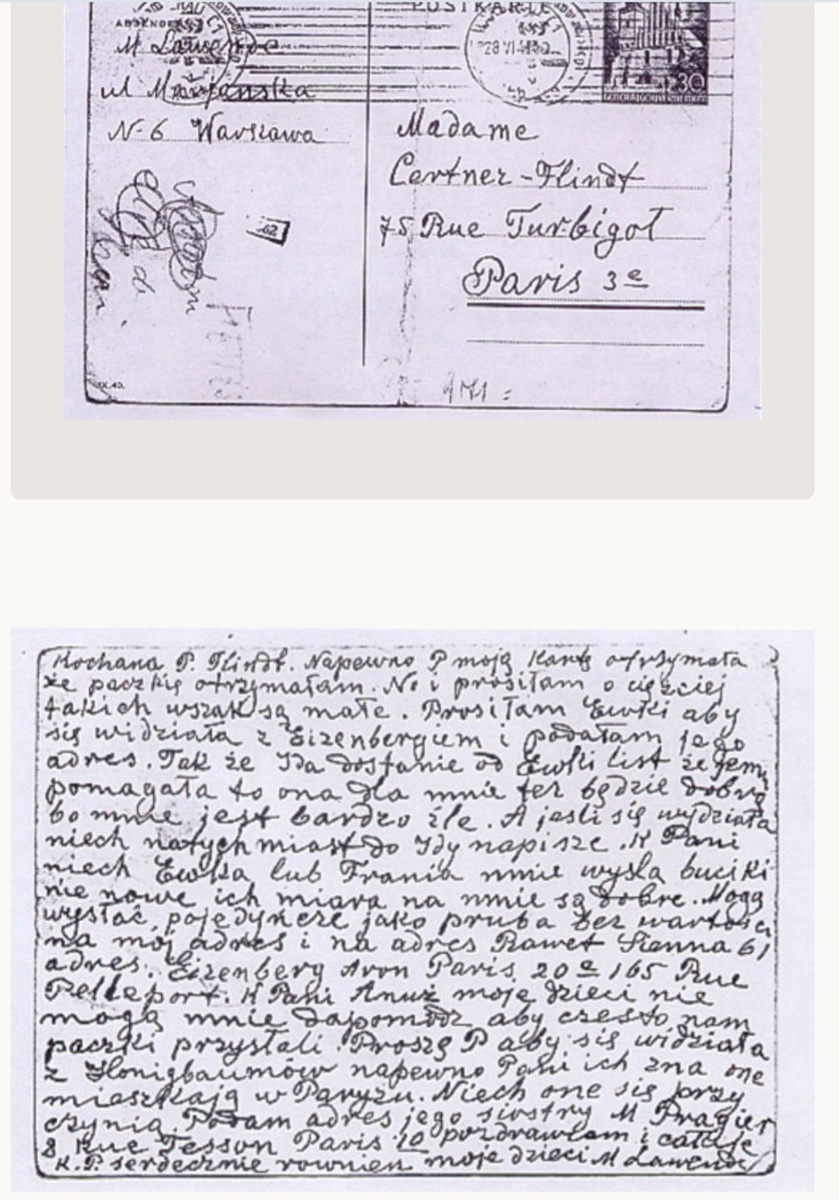 POSTKARTE
ABSENDER
M Lawende
ul Marjanska
N-6 Warszawa
28 VI 41
30
GENERALGOUVERNEMENT
Madame
Certner-Flindt
75 Rue Turbigot
Paris 3e
62
IX.40.
Kochana P. Flindt. Napewno P moją kartę otrzymała
że paczkię otrzymałam. No i prosiłam o cięzciej
takich wszak są małe. Prosiłam Ewki aby
się widziała z Eizenbergiem i podałam jego
adres. Tak że Ida dostanie od Ewki list że jemu
pomagała to ona dla mnie też będzie dobrą
bo mnie jest bardzo źle. A jesli się widziała
niech natychmiast do Idy napisze. K Pani
niech Ewka lub Frania mnie wysla buciki
nie nowe ich miara na mnie są dobre. Mogą
wysłać pojedyncze jako pruba bez wartości
na mój adres i na adres Rawet Sienna 61
adres. Eizenberg Aron Paris 20e 165 Rue
Pelleport. K Pani Anuż moje dzieci nie
mogą mnie dapomódz aby często nam
paczki przysłali. Proszę P aby się widziała
z Honigbaumów napewno Pani ich zna one
mieszkają w Paryżu. Niech one się przy
czynią. Podam adres jego siostry M Pragier
8 Rue Tesson Paris 10 pozdrawiam i całuje
K.P serdecznie rownien moje dzieci M Lawende